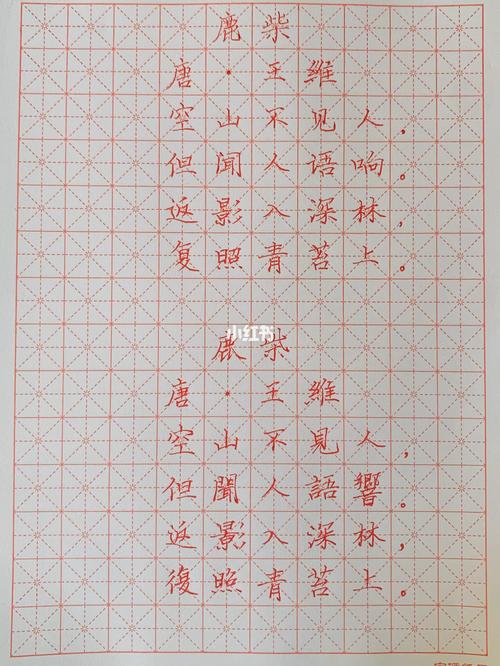 鹿柴
唐·王維
空山不见人,
但闻人语响。
返影入深林,
复照青苔上。
小红书
鹿柴
唐·王維
空山不見人,
但聞人語響。
返影入深林,
復照青苔上。